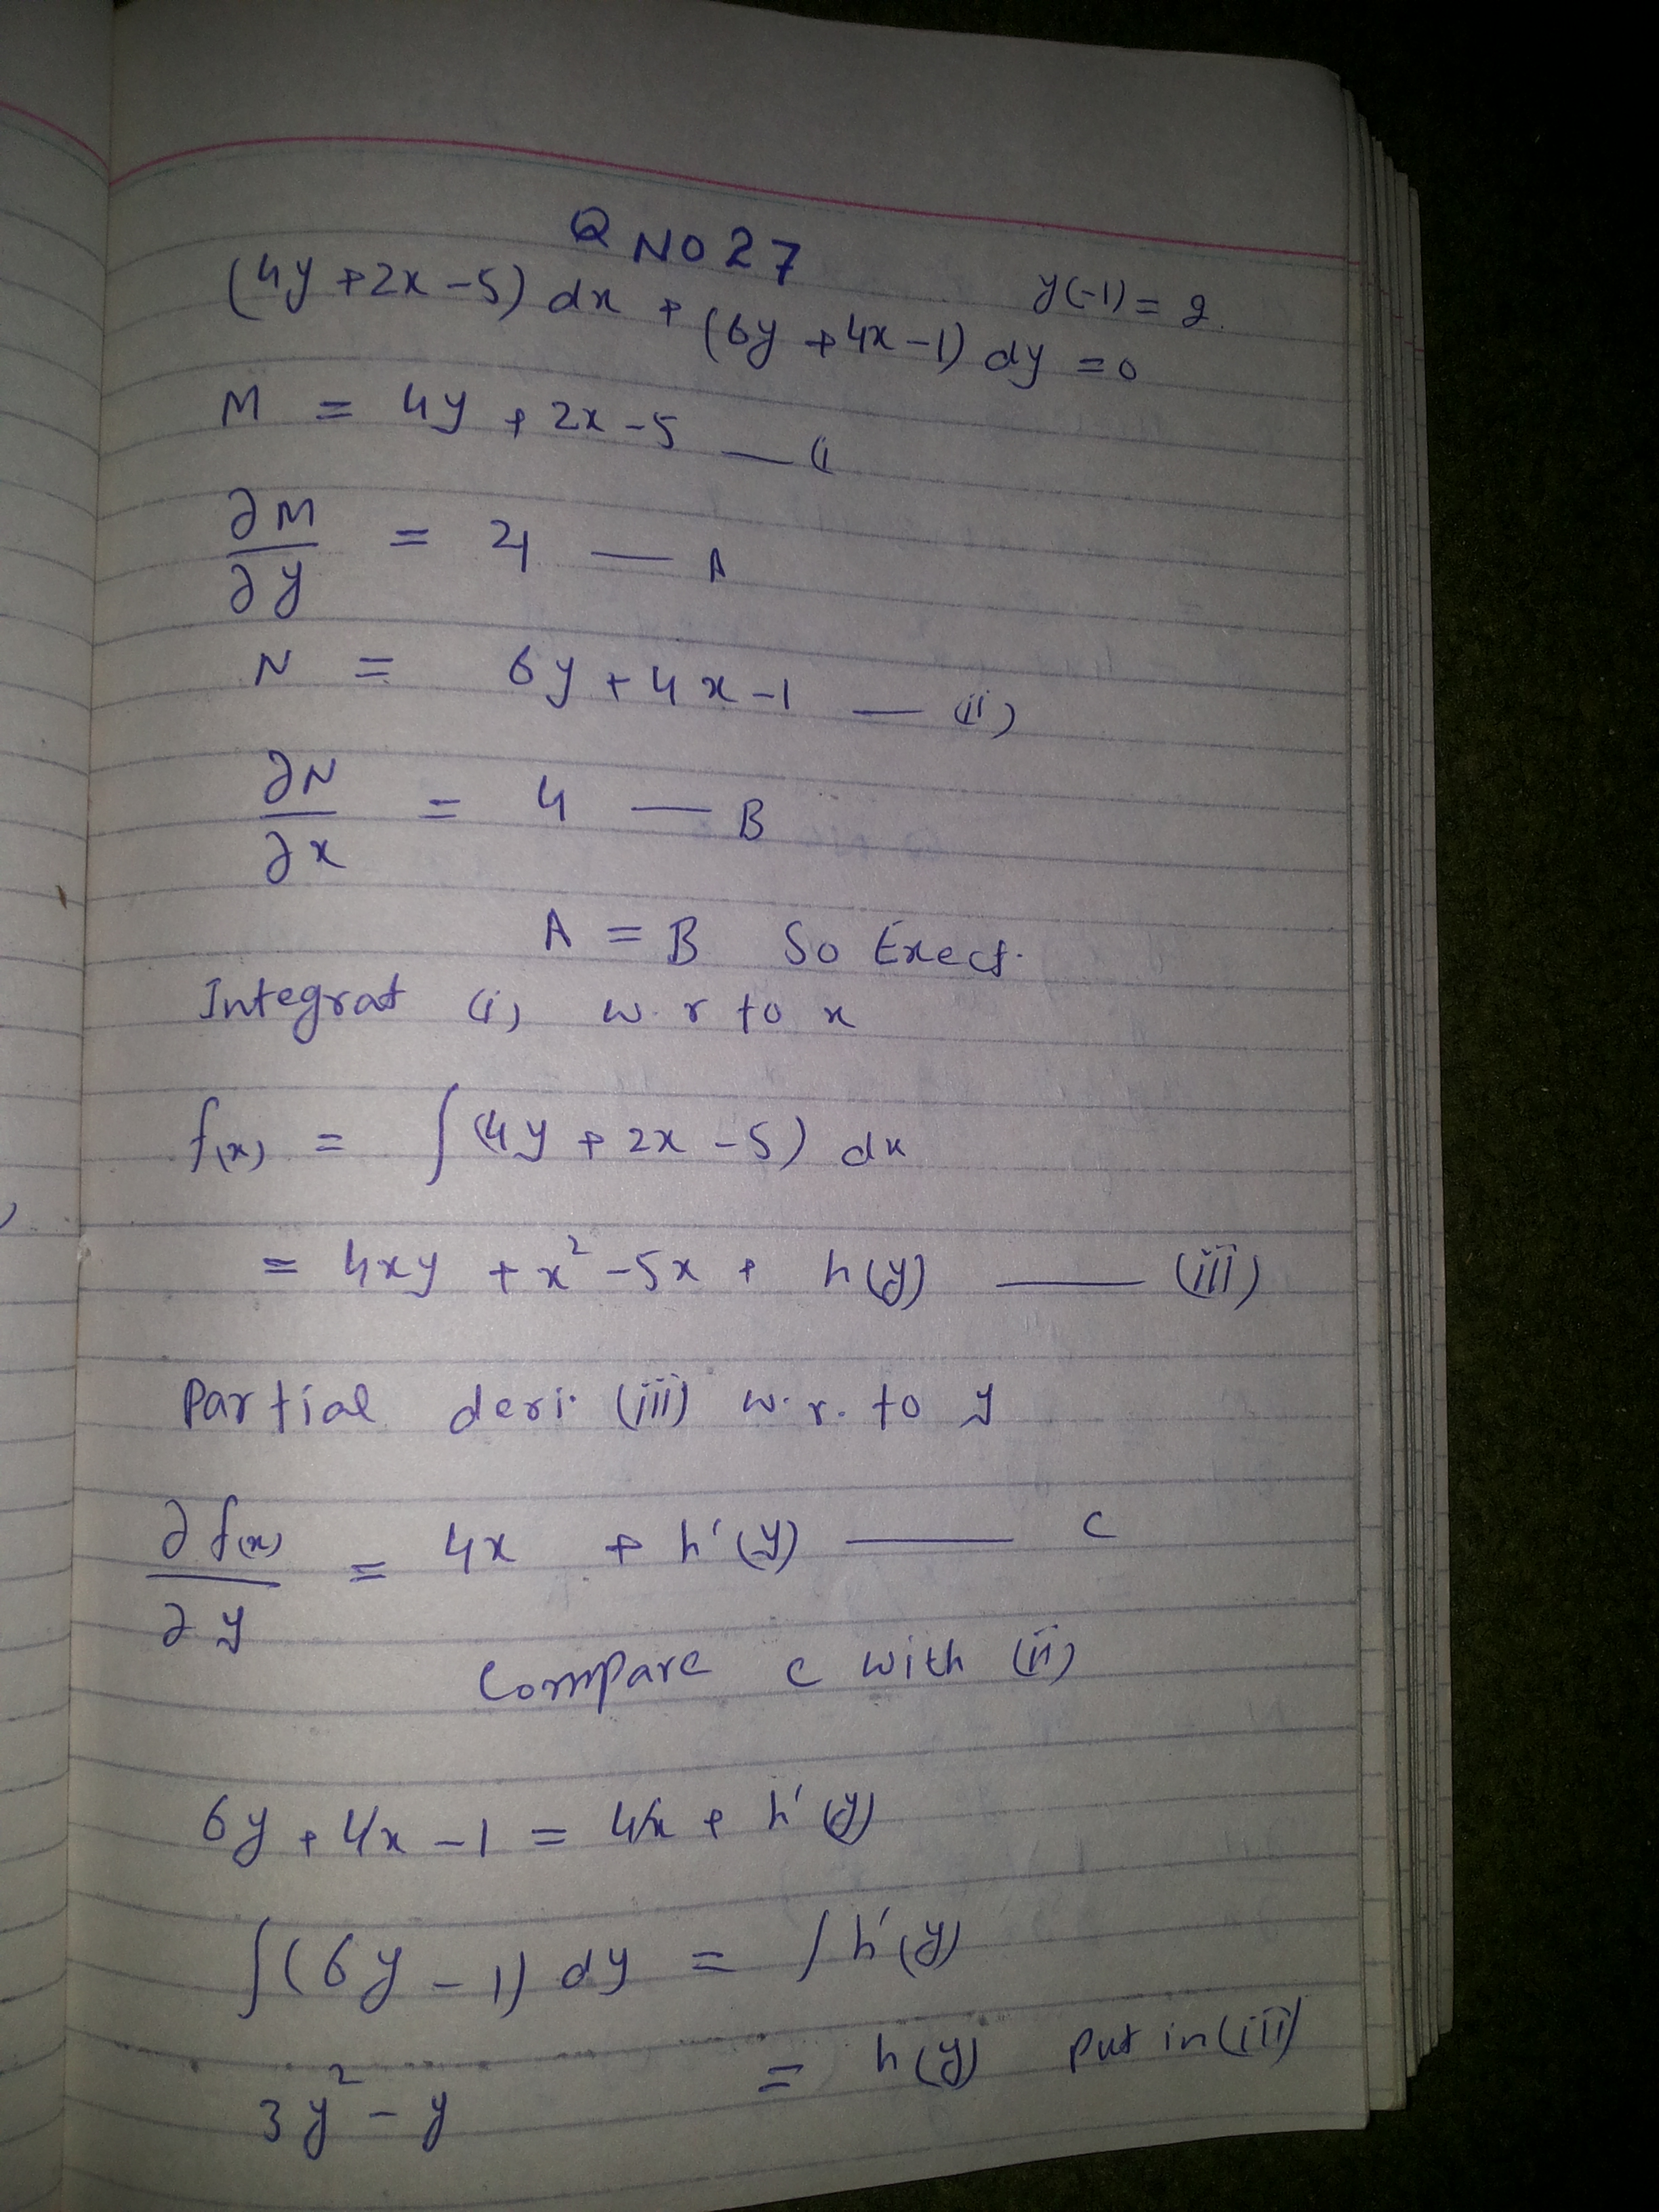 Q NO 27
(4y + 2x - 5) dx + (6y + 4x - 1) dy = 0 y(-1) = 2
M = 4y + 2x - 5 — (i
∂M/∂y = 4 — A
N = 6y + 4x - 1 — (ii)
∂N/∂x = 4 — B
A = B So Exect.
Integrat (i) w.r to x
f(x) = ∫(4y + 2x - 5) dx
= 4xy + x² - 5x + h(y) — (iii)
Partial deri. (iii) w.r. to y
∂f(x)/∂y = 4x + h'(y) — C
Compare C with (ii)
6y + 4x - 1 = 4x + h'(y)
∫(6y - 1) dy = ∫h'(y)
3y² - y = h(y) Put in (iii)